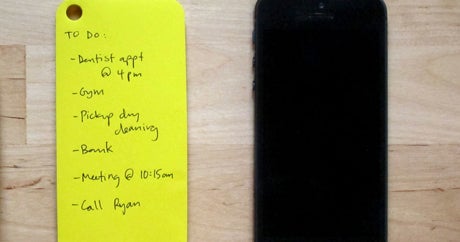 TO DO:
- Dentist appt
@ 4pm
- Gym
- Pickup dry
cleaning
- Bank
- Meeting @ 10:15am
- Call Ryan